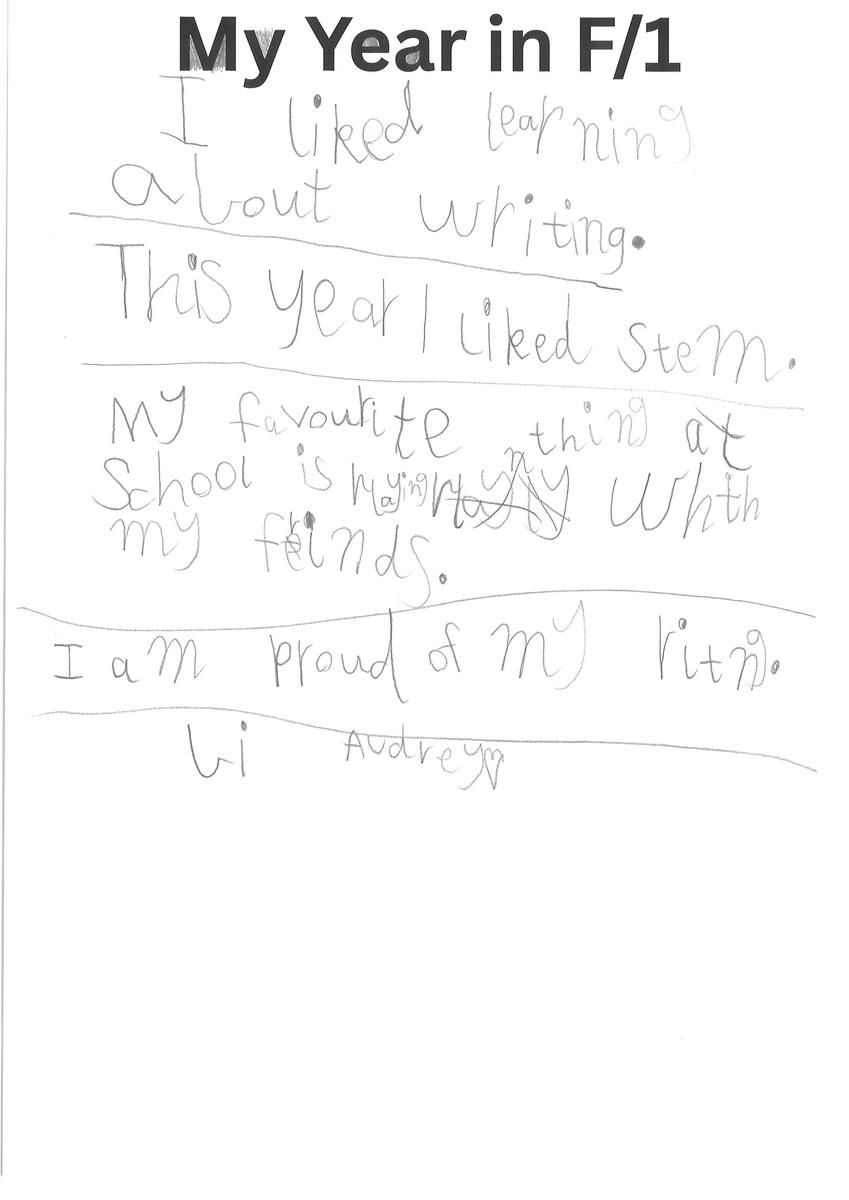 My Year in F/1
I liked learning
about writing.
This year I liked stem.
My favourite thing at
School is playing whth
my feinds.
I am proud of my ritng.
bi Audrey♡